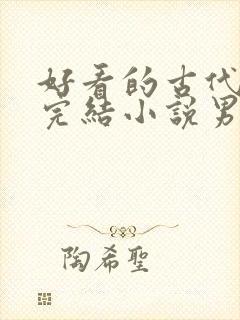 好看的古代
完結小說男
陶希聖